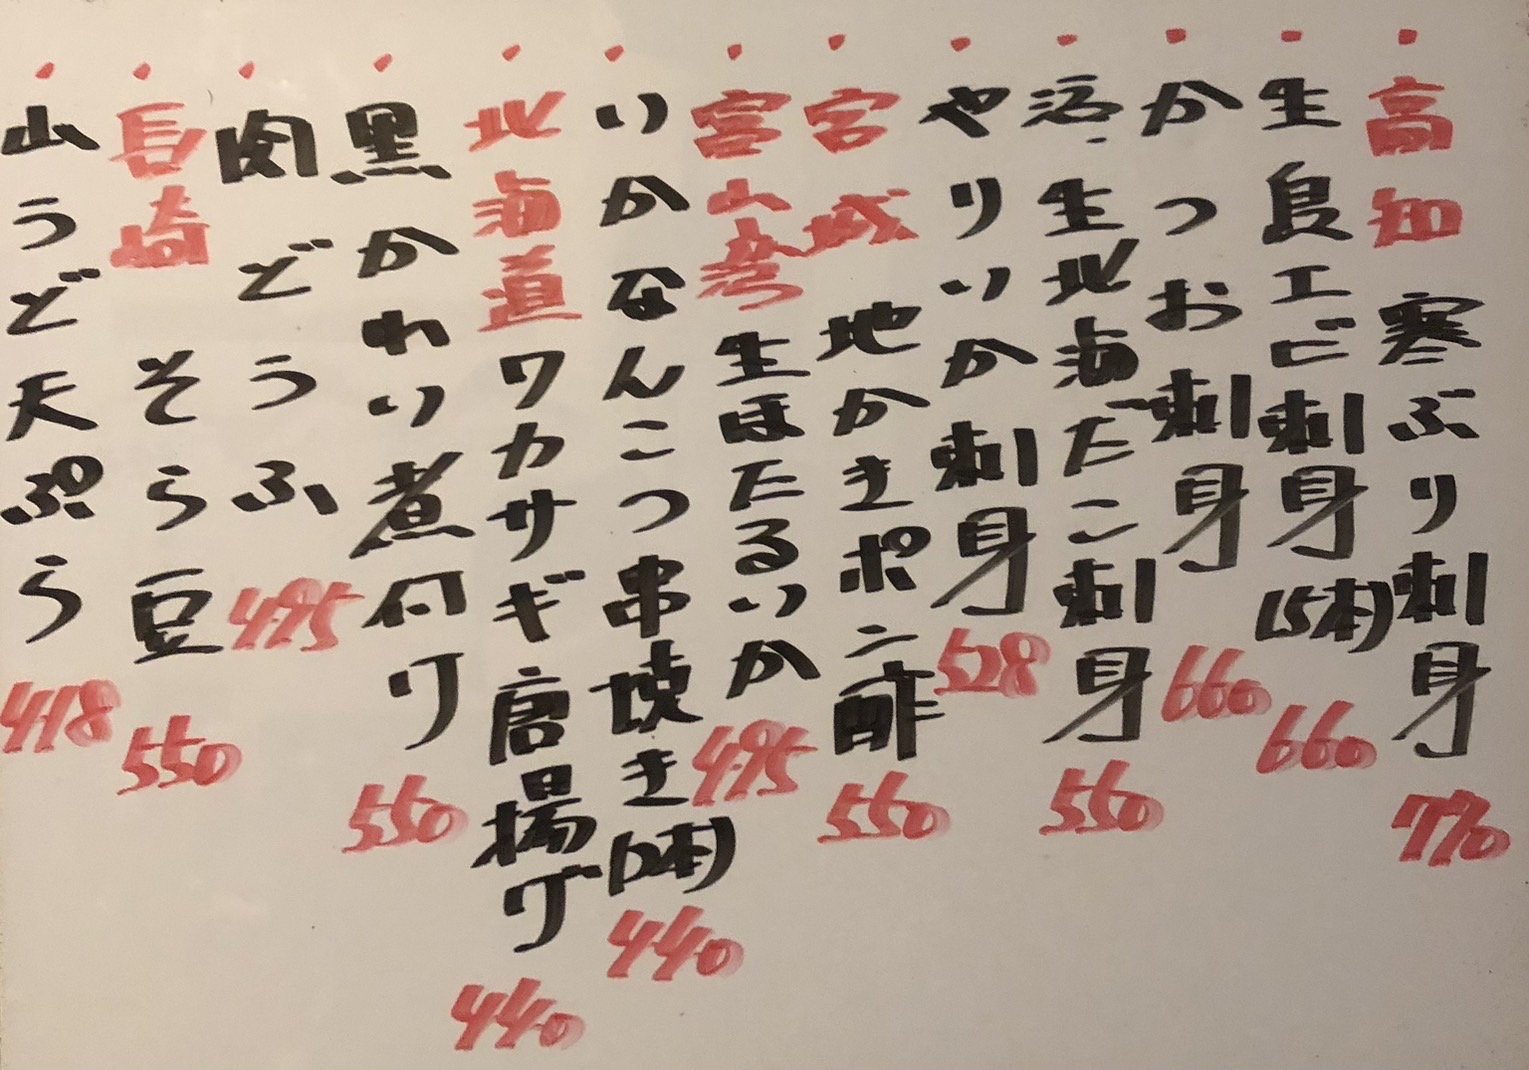 ・高知 寒ぶり刺身 770
・生良エビ刺身(5本) 660
・かつお刺身 660
・活生北海だこ刺身 550
・やりいか刺身 528
・宮城 地かきポン酢 550
・富山湾 生ほたるいか 495
・いかなんこつ串焼き(2本) 440
・北海道 ワカサギ唐揚げ 440
・黒かれい煮付け 550
・肉どうふ 495
・長崎 そら豆 550
・山うど天ぷら 418